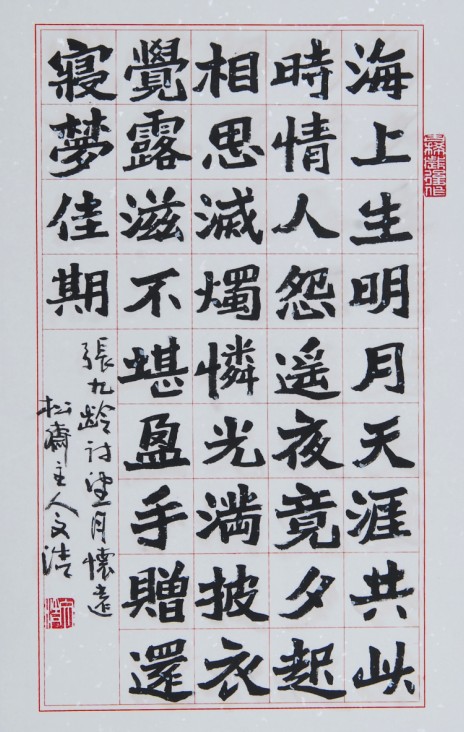 海上生明月天涯共此
時情人怨遥夜竟夕起
相思滅燭憐光滿披衣
覺露滋不堪盈手贈還
寢夢佳期
張九龄詩望月懷遠
松齋主人文浩